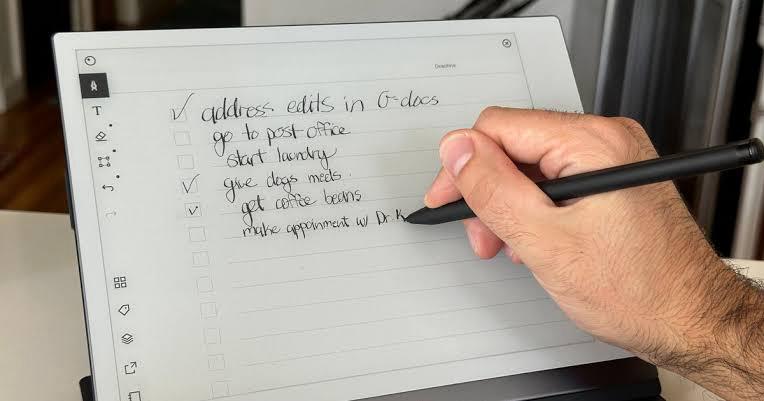 Deadline
address edits in G-docs
go to post office
start laundry
give dogs meds.
get coffee beans
make appoinment w/ Dr. K